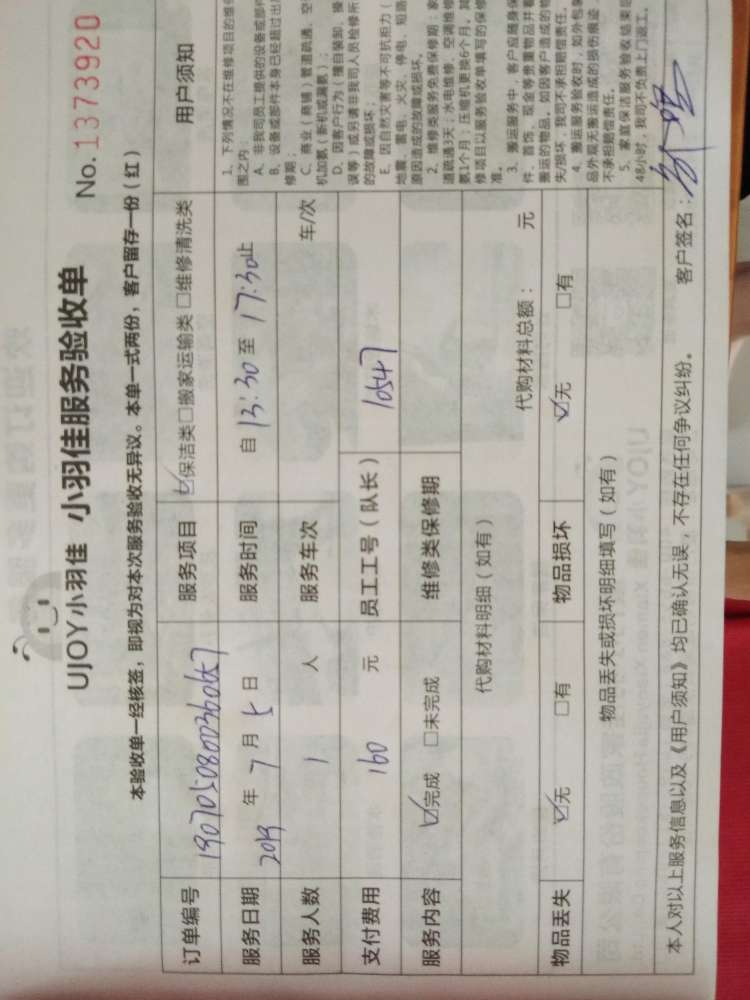 UJOY小羽佳 小羽佳服务验收单
No.1373920
本验收单一经核签，即视为对本次服务验收无异议。本单一式两份，客户留存一份（红）
订单编号 服务项目 ☑保洁类□搬家运输类 □维修清洗类
服务日期 2019 年 7 月 5 日 服务时间 自 13:30 至 17:30止
服务人数 1 人 服务车次 车/次
支付费用 160 元 员工工号（队长） 10547
服务内容 ☑完成 □未完成 维修类保修期
代购材料明细（如有）
代购材料总额： 元
物品丢失 ☑无 □有 物品损坏 ☑无 □有
物品丢失或损坏明细填写（如有）
用户须知
1、下列情况不在维修项目的维
围之内：
A、非我司员工提供的设备或部件
B、设备或部件本身已经超过出
修期；
C、商业（商铺）管道疏通、空
机加氨（新机或漏氨）；
D、因客户行为（擅自装卸、操
误等）或另请非我司人员检修所
的故障或损坏；
E、因自然灾害等不可抗拒力（
地震、雷电、火灾、停电、短路
原因造成的故障或损坏。
2、维修类服务免费保修期：家
道疏通3天；水电维修、空调维修
氨1个月；压缩机更换6个月。其
修项目以服务验收单填写的保修
准。
3、搬运服务中，客户应随身保
件、首饰、现金等贵重物品并看
搬运的物品。如因客户造成的物
失/损坏，我司不承担赔偿责任。
4、搬运服务验收时，如外包装
品外观无搬运造成的损伤痕迹
不承担赔偿责任。
5、家庭保洁服务验收结束后
48小时，我司不负责上门返工。
本人对以上服务信息以及《用户须知》均已确认无误，不存在任何争议纠纷。 客户签名：